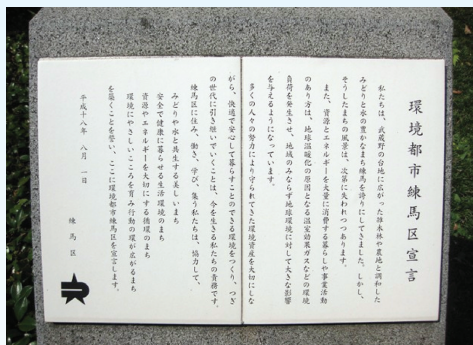 環境都市練馬区宣言
私たちは、武蔵野の台地に広がった雑木林や農地と調和した
みどりと水の豊かなまち練馬を誇りにしてきました。しかし、
そうしたまちの風景は、次第に失われつつあります。
また、資源とエネルギーを大量に消費する暮らしや事業活動
のあり方は、地球温暖化の原因となる温室効果ガスなどの環境
負荷を発生させ、地域のみならず地球環境に対して大きな影響
を与えるようになっています。
多くの人々の努力により守られてきた環境資産を大切にしな
がら、快適で安心して暮らすことのできる環境をつくり、つぎ
の世代に引き継いでいくことは、今を生きる私たちの責務です。
練馬区に住み、働き、学び、集う私たちは、協力して、
みどりや水と共生する美しいまち
安全で健康に暮らせる生活環境のまち
資源やエネルギーを大切にする循環のまち
環境にやさしいこころを育み行動の環が広がるまち
を築くことを誓い、ここに環境都市練馬区を宣言します。
平成十八年 八月 一日
練馬区